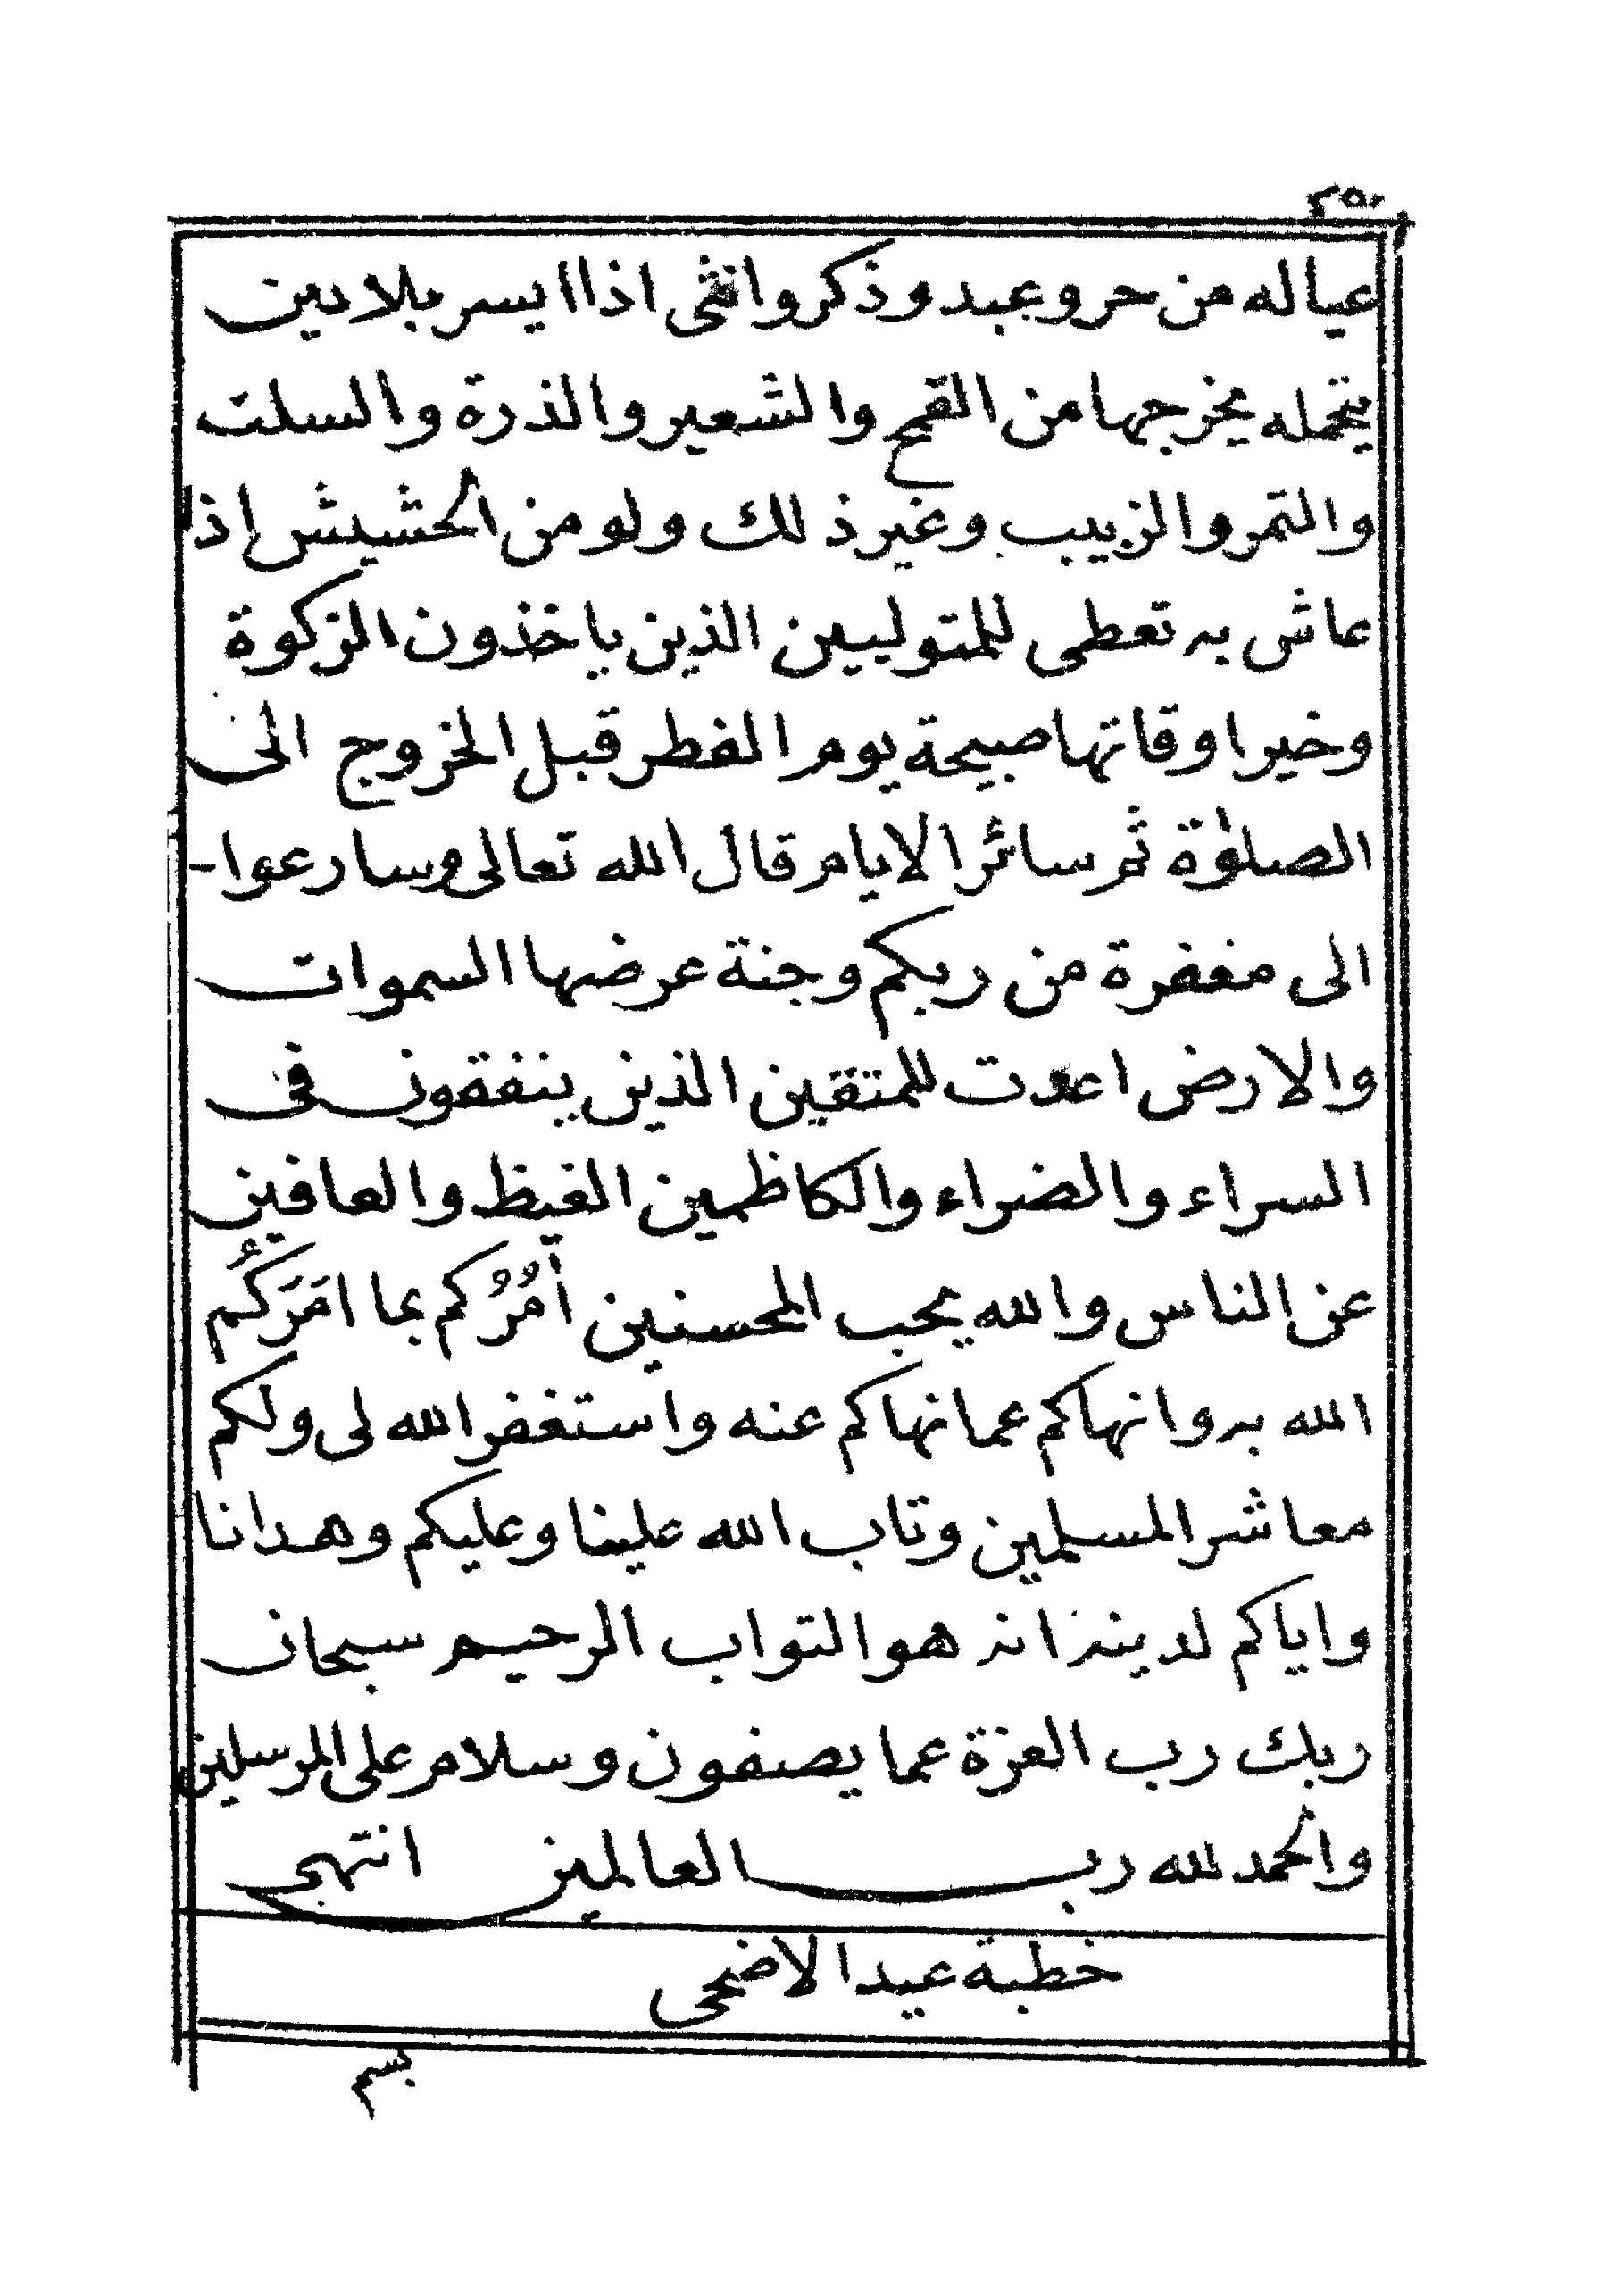 ٢٥٠
عياله من حر وعبد وذكر وانثى اذا ايسر بلا دين
يتحمله يخرجها من القمح والشعير والذرة والسلت
والتمر والزبيب وغير ذلك ولو من الحشيش اذا
عاش به تعطى للمتوليين الذين ياخذون الزكوة
وخير اوقاتها صبيحة يوم الفطر قبل الخروج الى
الصلوة ثم سائر الايام قال الله تعالى وسارعوا-
الى مغفرة من ربكم وجنة عرضها السموات
والارض اعدت للمتقين الذين ينفقون فى
السراء والضراء والكاظمين الغيظ والعافين
عن الناس والله يحب المحسنين أمُرُكم بما امَرَكُم
الله به وانهاكم عما نهاكم عنه واستغفر الله لى ولكم
معاشر المسلمين وتاب الله علينا وعليكم وهدانا
واياكم لدينه انه هو التواب الرحيم سبحان
ربك رب العزة عما يصفون وسلام على المرسلين
والحمد لله رب العالمين انتهى
خطبة عيد الاضحى
بسم